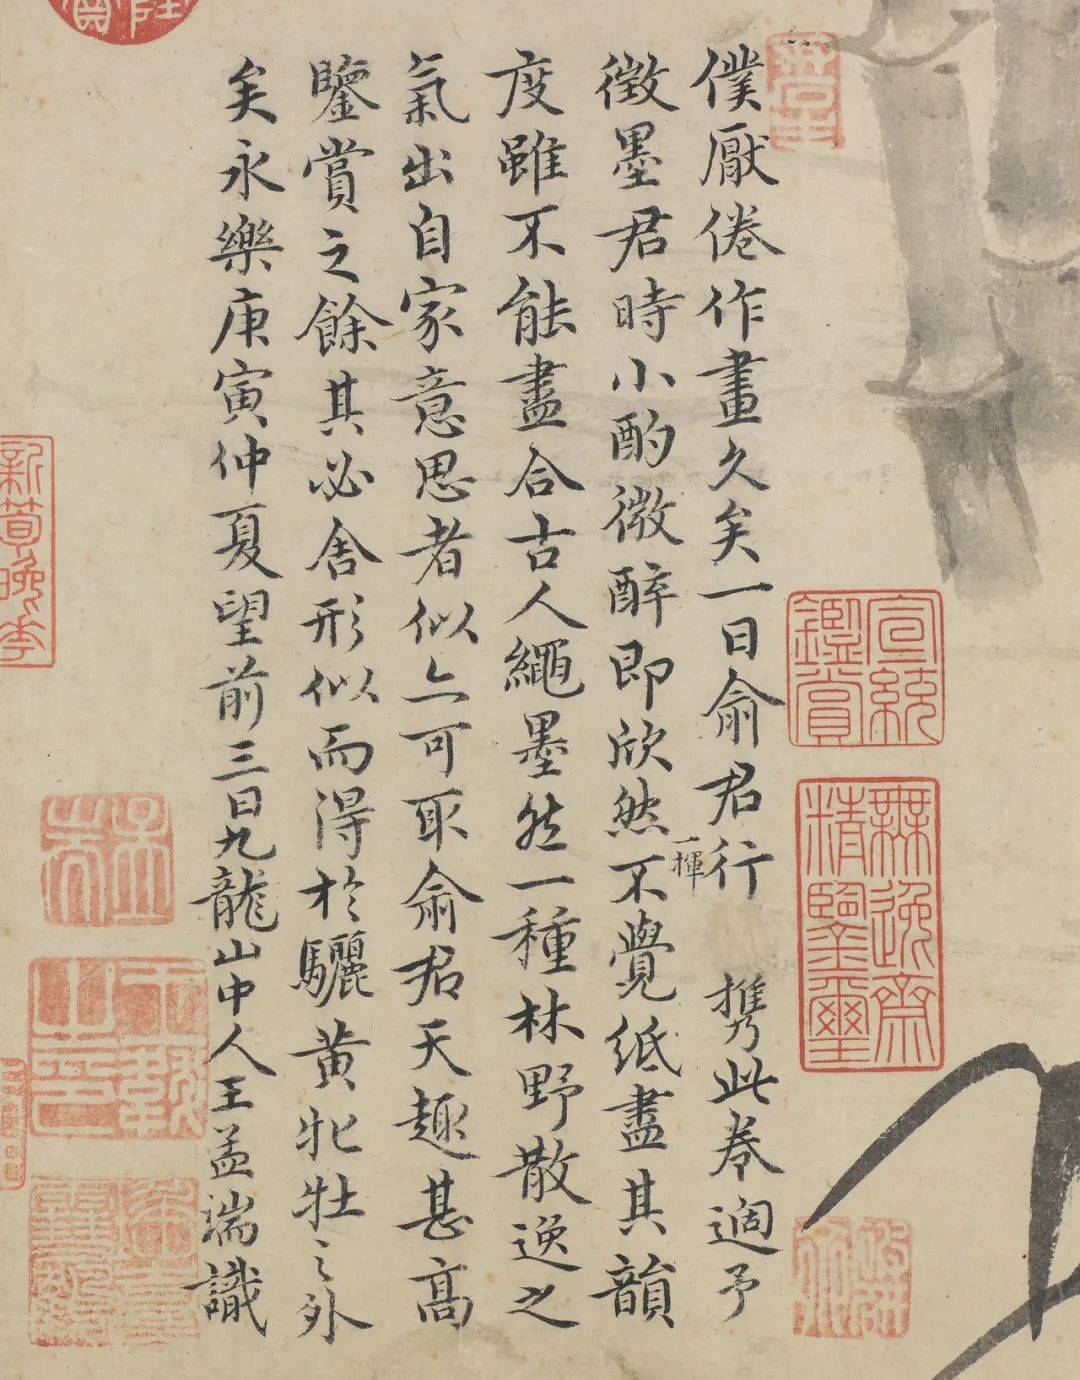 宣統鑑賞
無逸齋精鑒璽
僕厭倦作畫久矣一日俞君行 攜此卷適予
徵墨君時小酌微醉即欣然不覺紙盡其韻
一揮
度雖不能盡合古人繩墨然一種林野散逸之
氣出自家意思者似亦可取俞君天趣甚高
鑒賞之餘其必舍形似而得於驪黃牝牡之外
矣永樂庚寅仲夏望前三日九龍山中人王孟端識